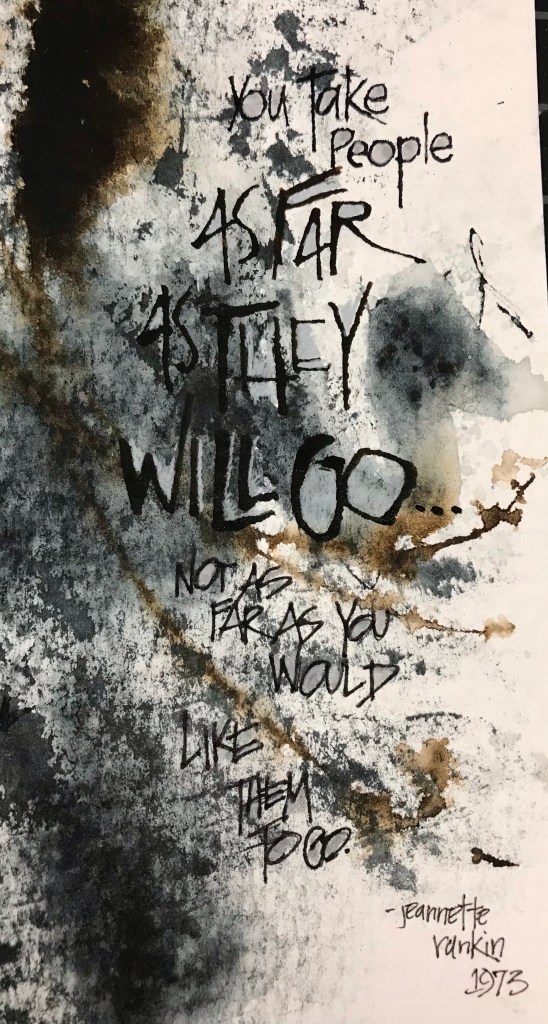 You Take
People
AS FAR
AS THEY
WILL GO...
NOT AS
FAR AS YOU
WOULD
LIKE
THEM
TO GO.
-jeannette
rankin
1973